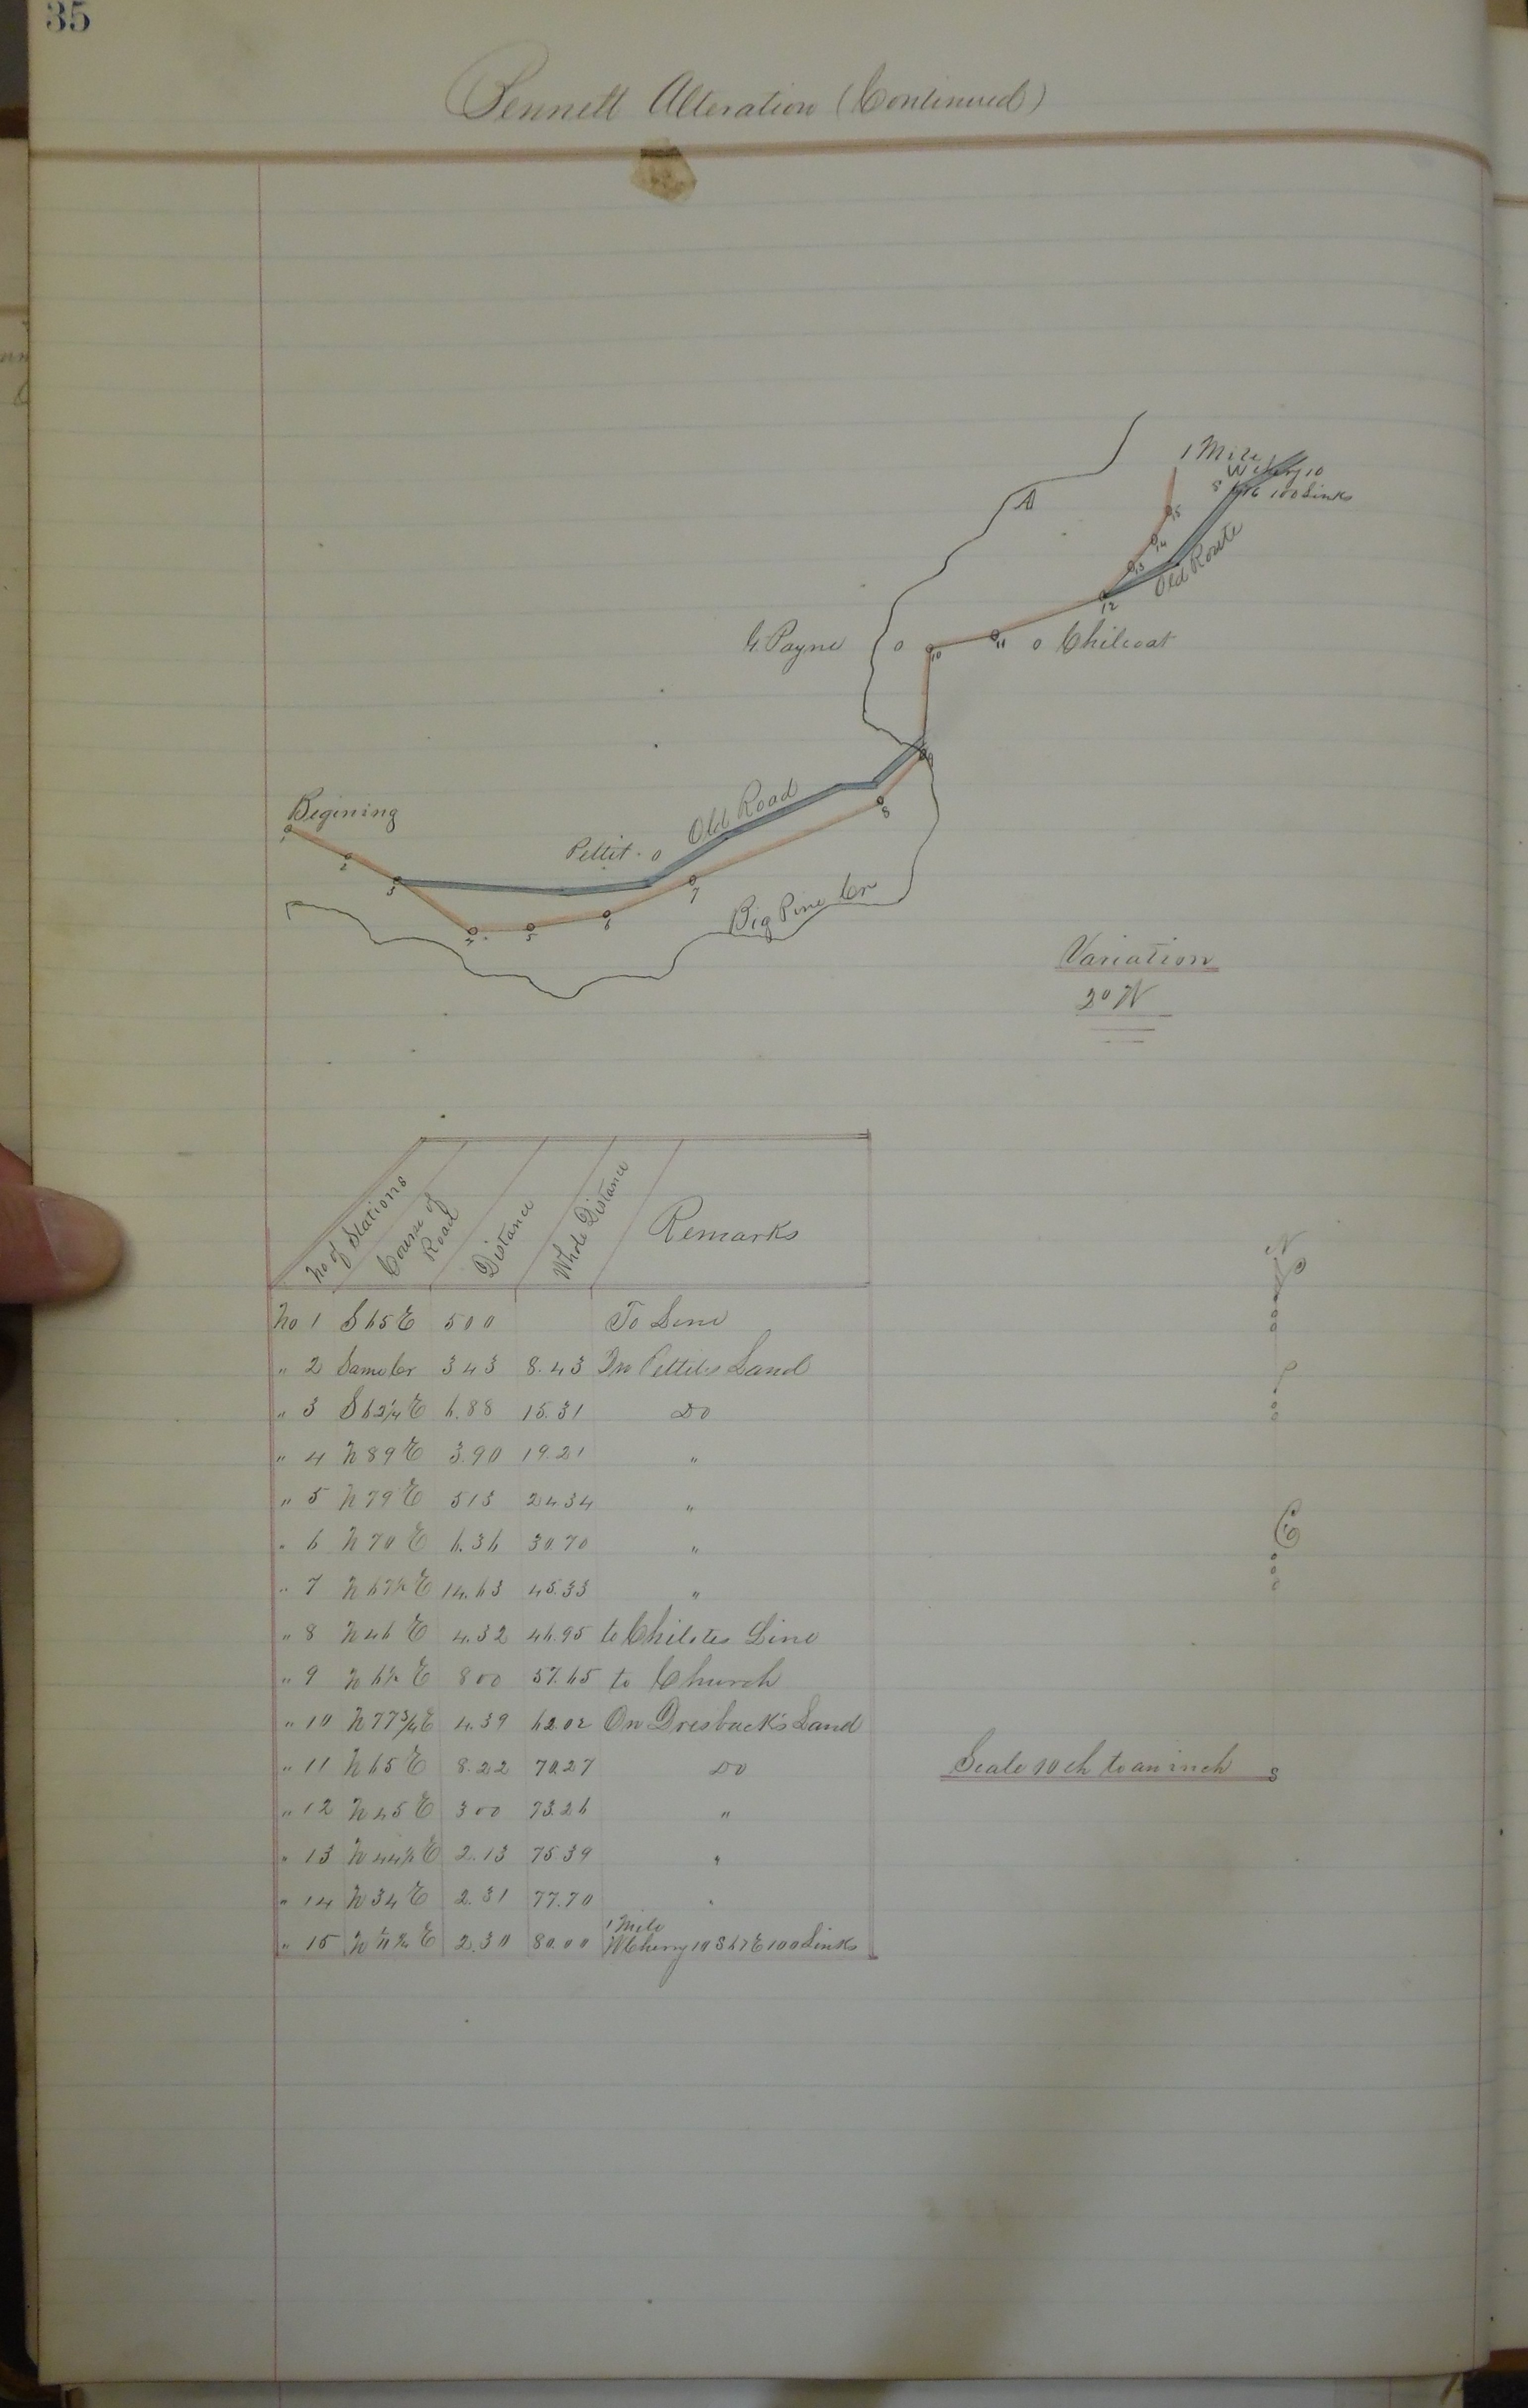 35
Bennett Alteration (Continued)
1 Mile
W Cherry 10
100 Links
Old Route
15
14
13
12
11
10
G. Payne o
o Chilcoat
9
8
Begining
1
2
3
4
5
6
7
Pettit o
Old Road
Big Pine Cr
Variation
2° W
No of Stations
Course of Road
Distance
Whole Distance
Remarks
No 1 S 65 E 500 To Line
" 2 Same Cr 343 8.43 On Pettits Land
" 3 S 62 1/4 E 6.88 15.31 Do
" 4 N 89 E 3.90 19.21 "
" 5 N 79 E 513 2434 "
" 6 N 70 E 6.36 30.70 "
" 7 N 67 1/2 E 14.63 45.33 "
" 8 N 46 E 4.32 46.95 to Chilotes Line
" 9 N 6 1/2 E 800 57.65 to Church
" 10 N 77 3/4 E 4.39 62.02 On Dresback's Land
" 11 N 65 E 8.22 70.27 Do
" 12 N 45 E 300 73.26 "
" 13 N 44 1/2 E 2.13 75.39 "
" 14 N 34 E 2.31 77.70 "
1 Mile
" 15 N E 2.30 80.00 W Cherry 10 S 67 E 100 Links
N
Scale 10 ch to an inch
S